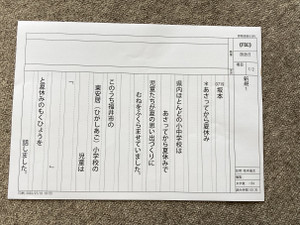 坂本
＊あさってから夏休み
県内ほとんどの小中学校は
あさってから夏休みで
児童たちが夏の思い出づくりに
むねをふくらませていました。
このうち福井市の
東安居（ひがしあご）小学校の
児童は
「
」
と夏休みのもくひょうを
話しました。